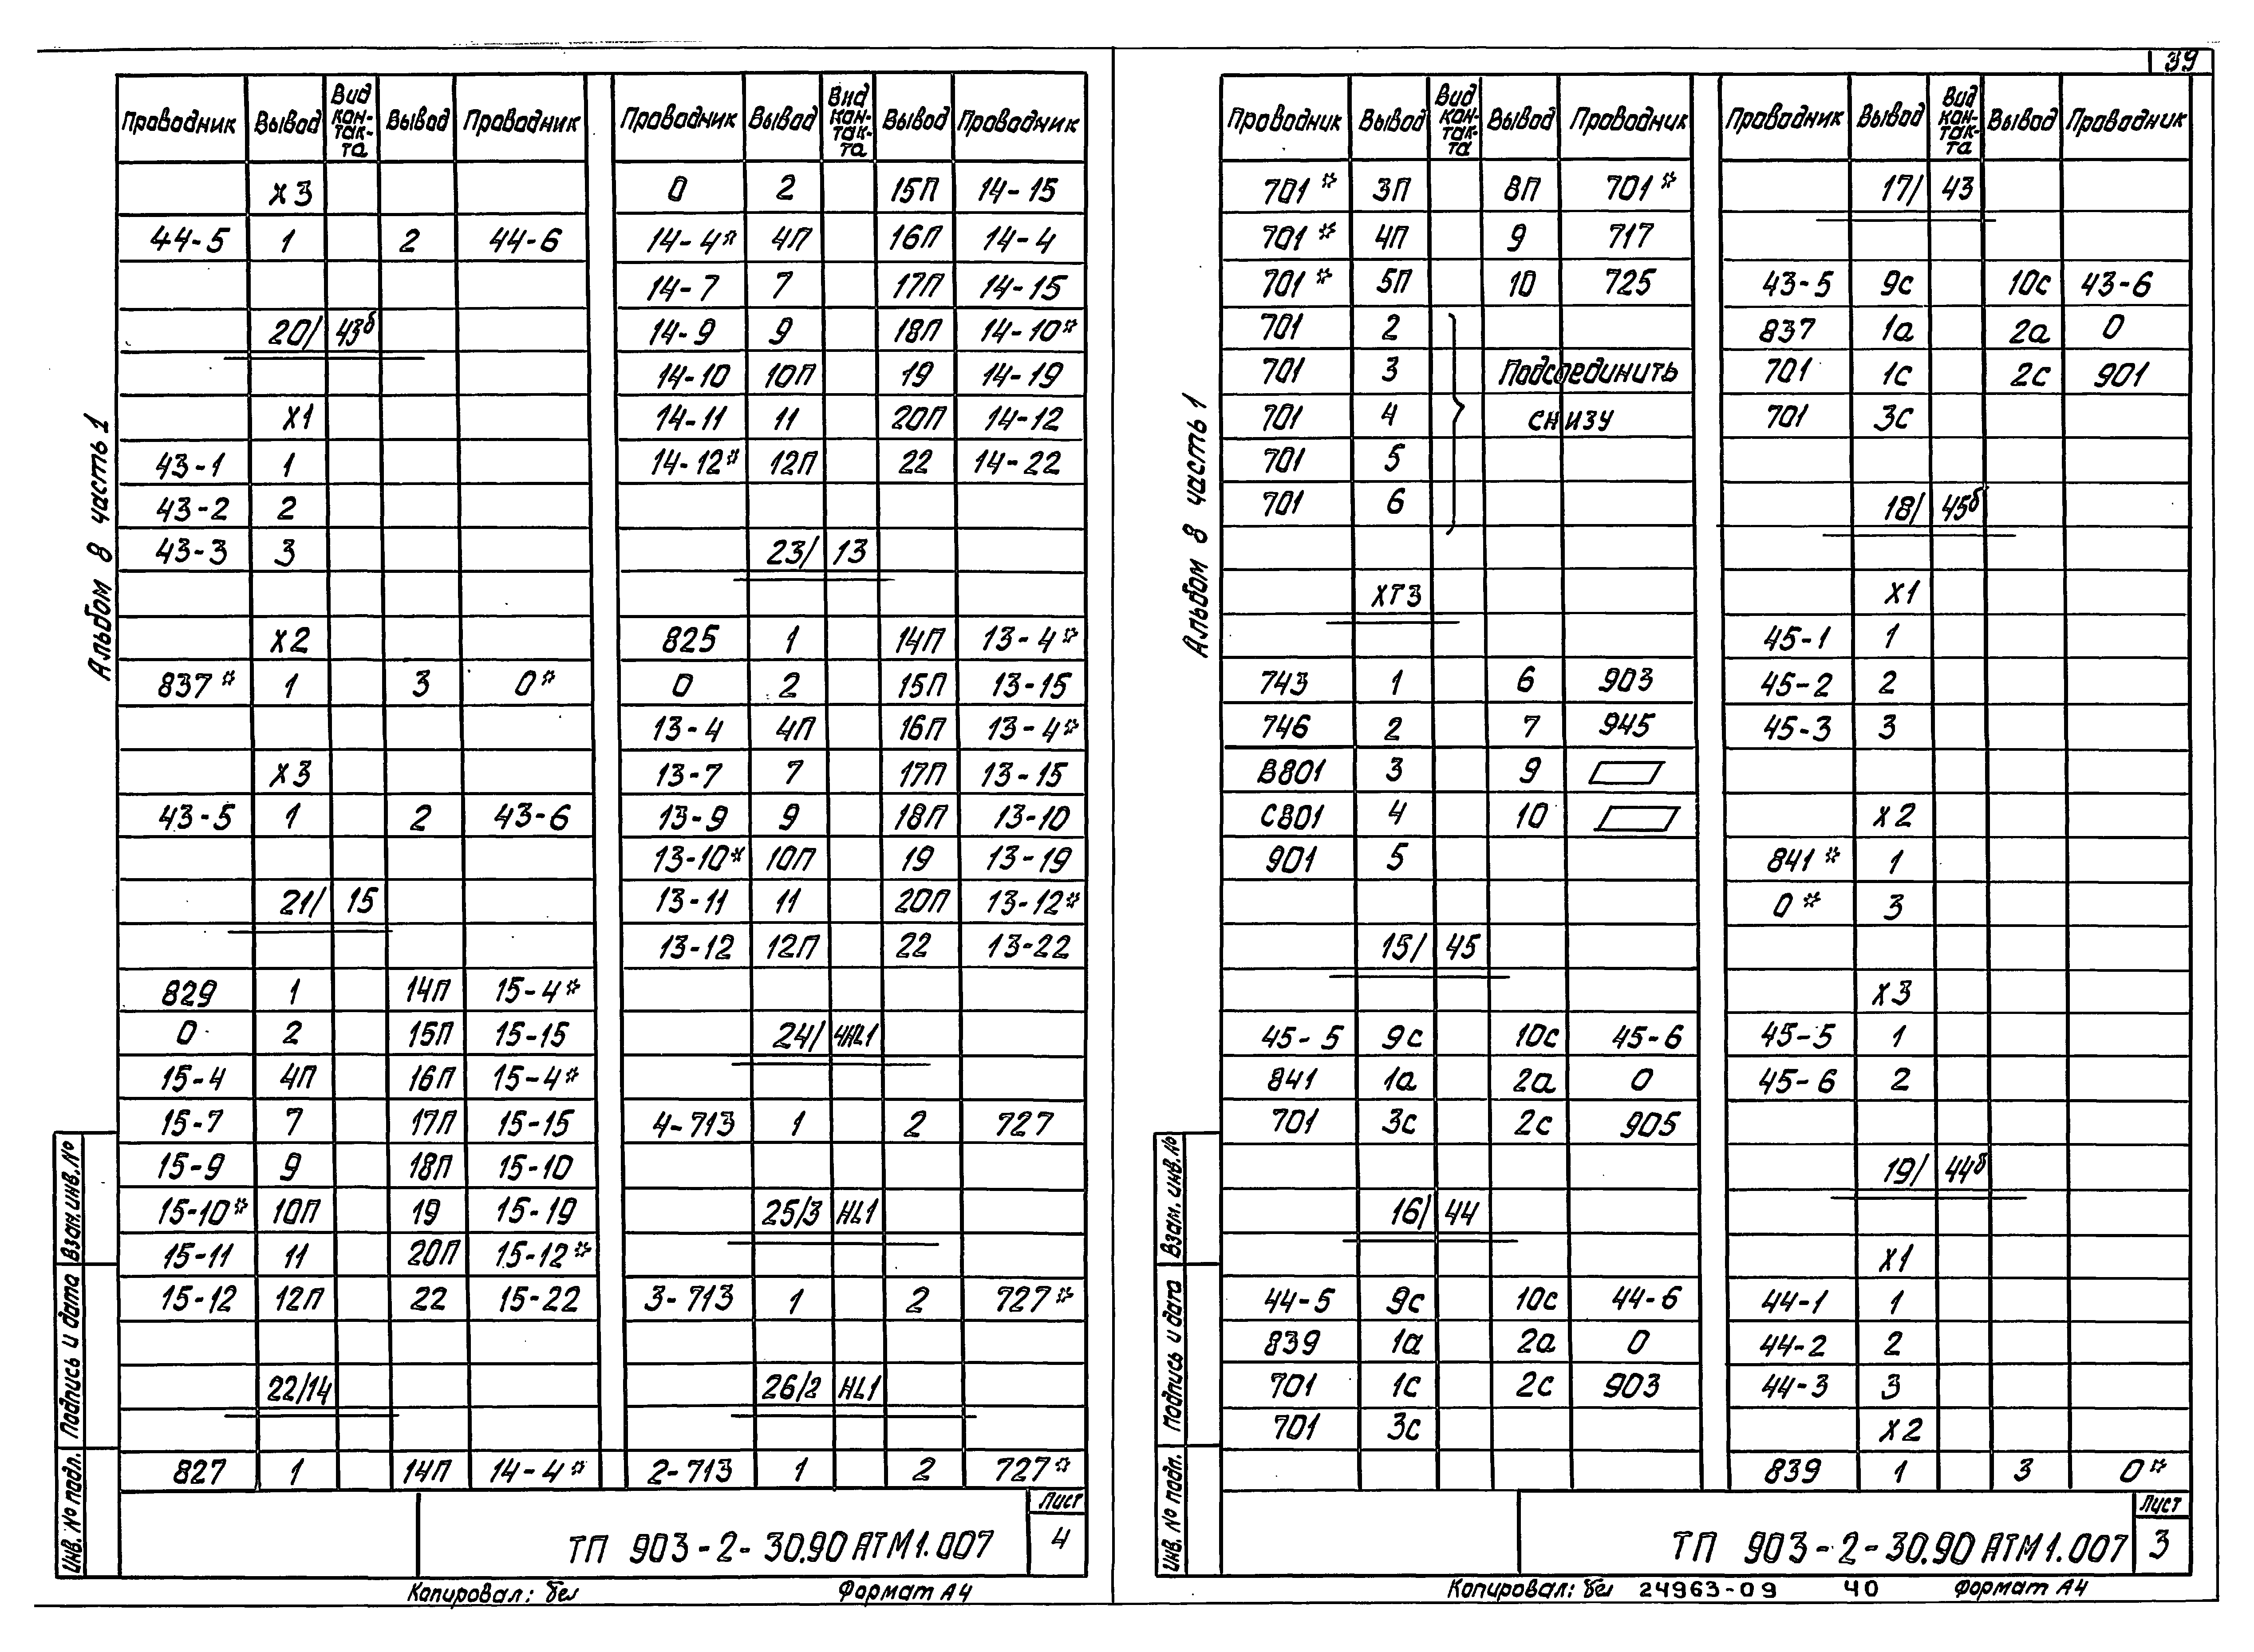 39
Альбом 8 часть 1
Проводник Вывод Вид кон-так-та Вывод Проводник
Х3
44-5 1 2 44-6
20/ 43б
Х1
43-1 1
43-2 2
43-3 3
Х2
837* 1 3 0*
Х3
43-5 1 2 43-6
21/ 15
829 1 14П 15-4*
0 2 15П 15-15
15-4 4П 16П 15-4*
15-7 7 17П 15-15
15-9 9 18П 15-10
15-10* 10П 19 15-19
15-11 11 20П 15-12*
15-12 12П 22 15-22
22/14
827 1 14П 14-4*
Проводник Вывод Вид кон-так-та Вывод Проводник
0 2 15П 14-15
14-4* 4П 16П 14-4
14-7 7 17П 14-15
14-9 9 18П 14-10*
14-10 10П 19 14-19
14-11 11 20П 14-12
14-12* 12П 22 14-22
23/ 13
825 1 14П 13-4*
0 2 15П 13-15
13-4 4П 16П 13-4*
13-7 7 17П 13-15
13-9 9 18П 13-10
13-10* 10П 19 13-19
13-11 11 20П 13-12*
13-12 12П 22 13-22
24/ 4HL1
4-713 1 2 727
25/3 HL1
3-713 1 2 727*
26/2 HL1
2-713 1 2 727*
Инв. № подл. Подпись и дата Взам. инв. №
ТП 903-2-30.90 АТМ1.007
Лист
4
Копировал: бел Формат А4
Альбом 8 часть 1
Проводник Вывод Вид кон-так-та Вывод Проводник
701* 3П 8П 701*
701* 4П 9 717
701* 5П 10 725
701 2
701 3 Подсоединить
701 4 снизу
701 5
701 6
ХТ3
743 1 6 903
746 2 7 945
В801 3 9
С801 4 10
901 5
15/ 45
45-5 9с 10с 45-6
841 1а 2а 0
701 3с 2с 905
16/ 44
44-5 9с 10с 44-6
839 1а 2а 0
701 1с 2с 903
701 3с
Проводник Вывод Вид кон-так-та Вывод Проводник
17/ 43
43-5 9с 10с 43-6
837 1а 2а 0
701 1с 2с 901
701 3с
18/ 45б
Х1
45-1 1
45-2 2
45-3 3
Х2
841* 1
0* 3
Х3
45-5 1
45-6 2
19/ 44б
Х1
44-1 1
44-2 2
44-3 3
Х2
839 1 3 0*
Инв. № подл. Подпись и дата Взам. инв. №
ТП 903-2-30.90 АТМ1.007
Лист
3
Копировал: бел 24963-09 40 Формат А4